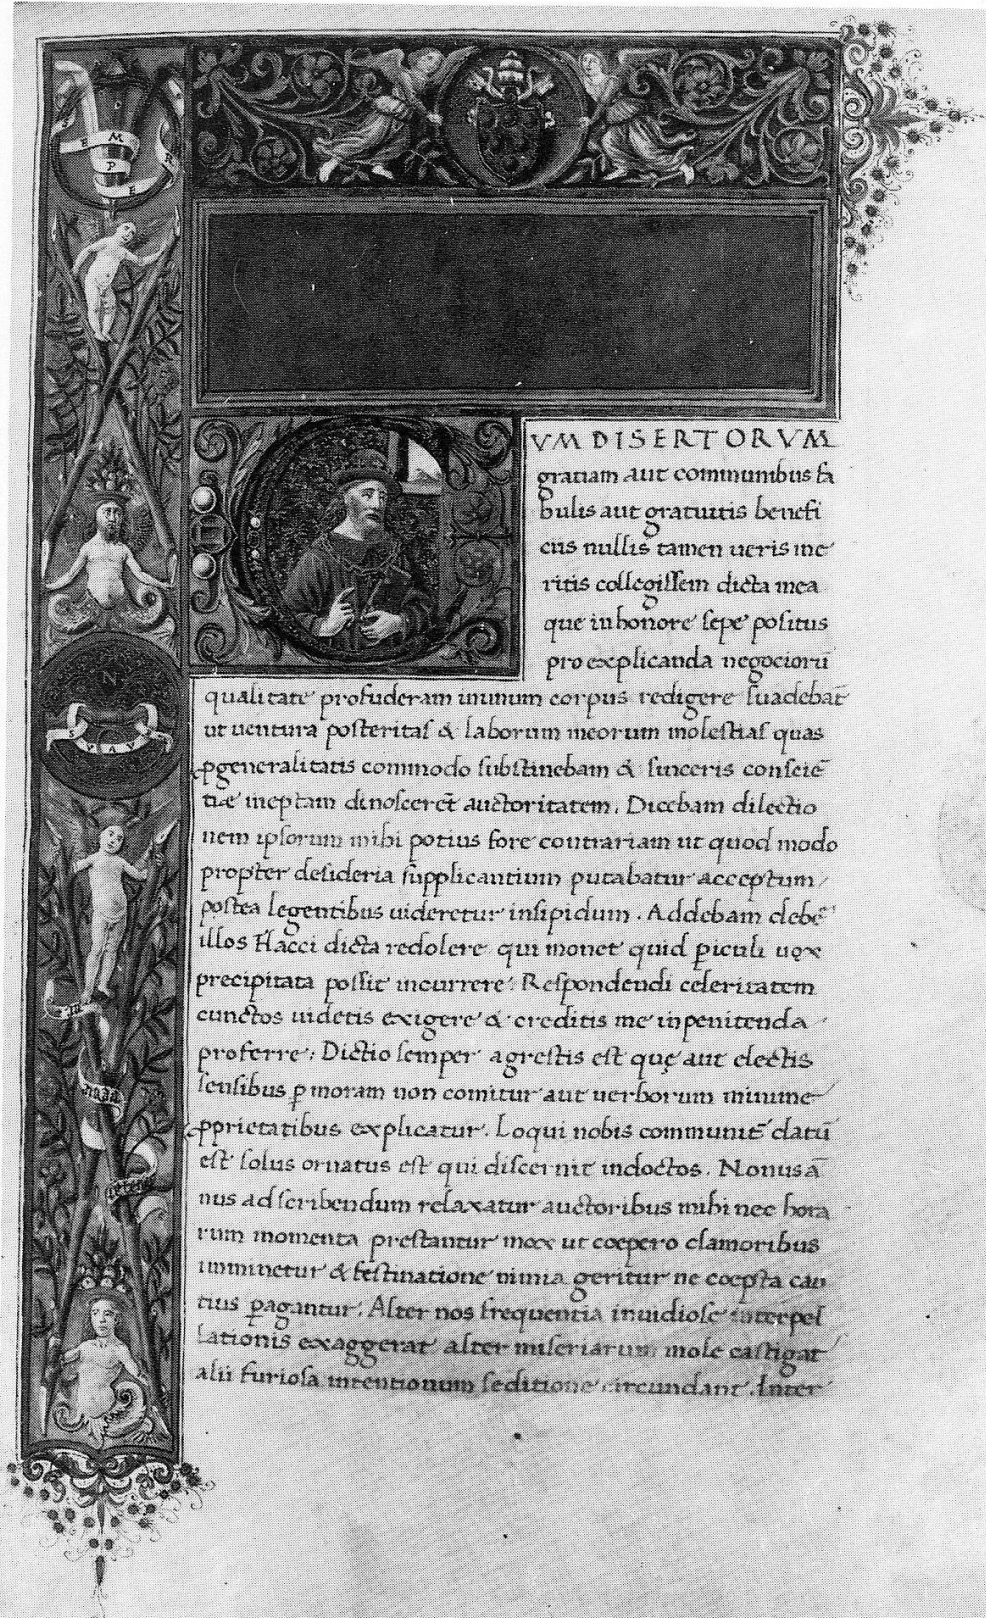 SEMPER
N
SVAVE
CVM DISERTORVM
gratiam aut communibus fa
bulis aut gratuitis benefi
ciis nullis tamen ueris me
ritis collegissem dicta mea
que in honore sepe positus
pro explicanda negociorũ
qualitate profuderam in unum corpus redigere suadebãt
ut uentura posteritas & laborum meorum molestias quas
ꝓ generalitatis commodo substinebam & sinceris consciẽ
tiæ ineptam dinosceret auctoritatem. Dicebam dilectio
nem ipsorum mihi potius fore contrariam ut quod modo
propter desideria supplicantium putabatur acceptum
postea legentibus uideretur insipidum. Addebam debẽ
illos Flacci dicta redolere qui monet quid ꝑiculi uox
precipitata possit incurrere: Respondendi celeritatem
cunctos uidetis exigere & creditis me inpenitenda
proferre: Dictio semper agrestis est quę aut electis
sensibus ꝑ moram non comitur aut uerborum minime
ꝓprietatibus explicatur. Loqui nobis communit̃ datũ
est solus ornatus est qui discernit indoctos. Nonus ã
nus ad scribendum relaxatur auctoribus mihi nec hora
rum momenta prestantur mox ut coepero clamoribus
imminetur & festinatione nimia geritur ne coepta cau
tius ꝑagantur. Alter nos frequentia inuidiose interpel
lationis exaggerat alter miseriarum mole castigat
alii furiosa intentionum seditione circundant. Inter